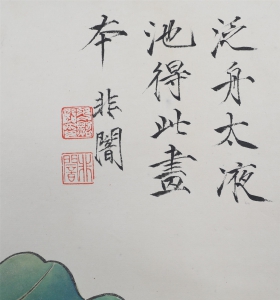 泛舟太液
池得此畫
本 非闇